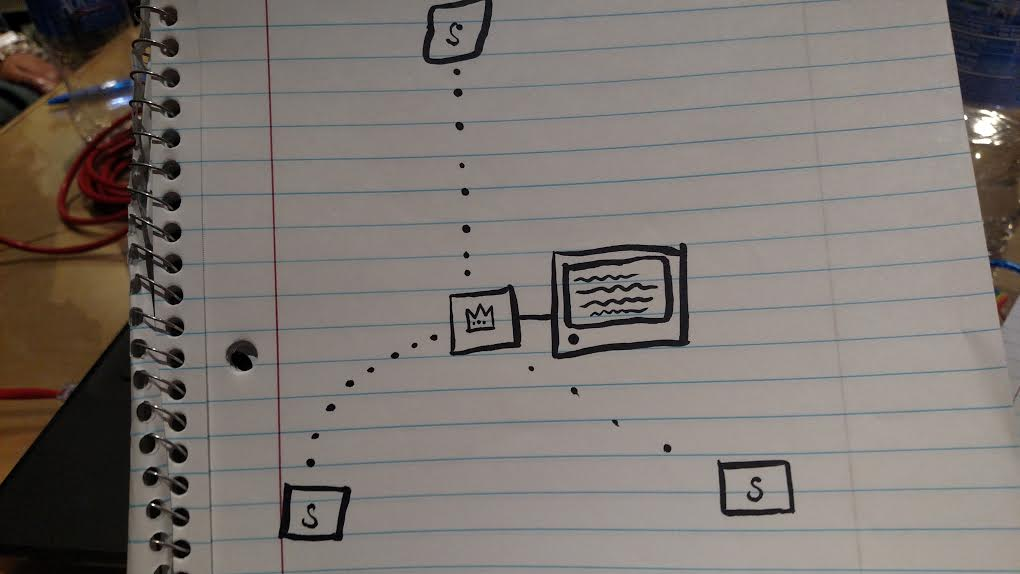 S
S
S